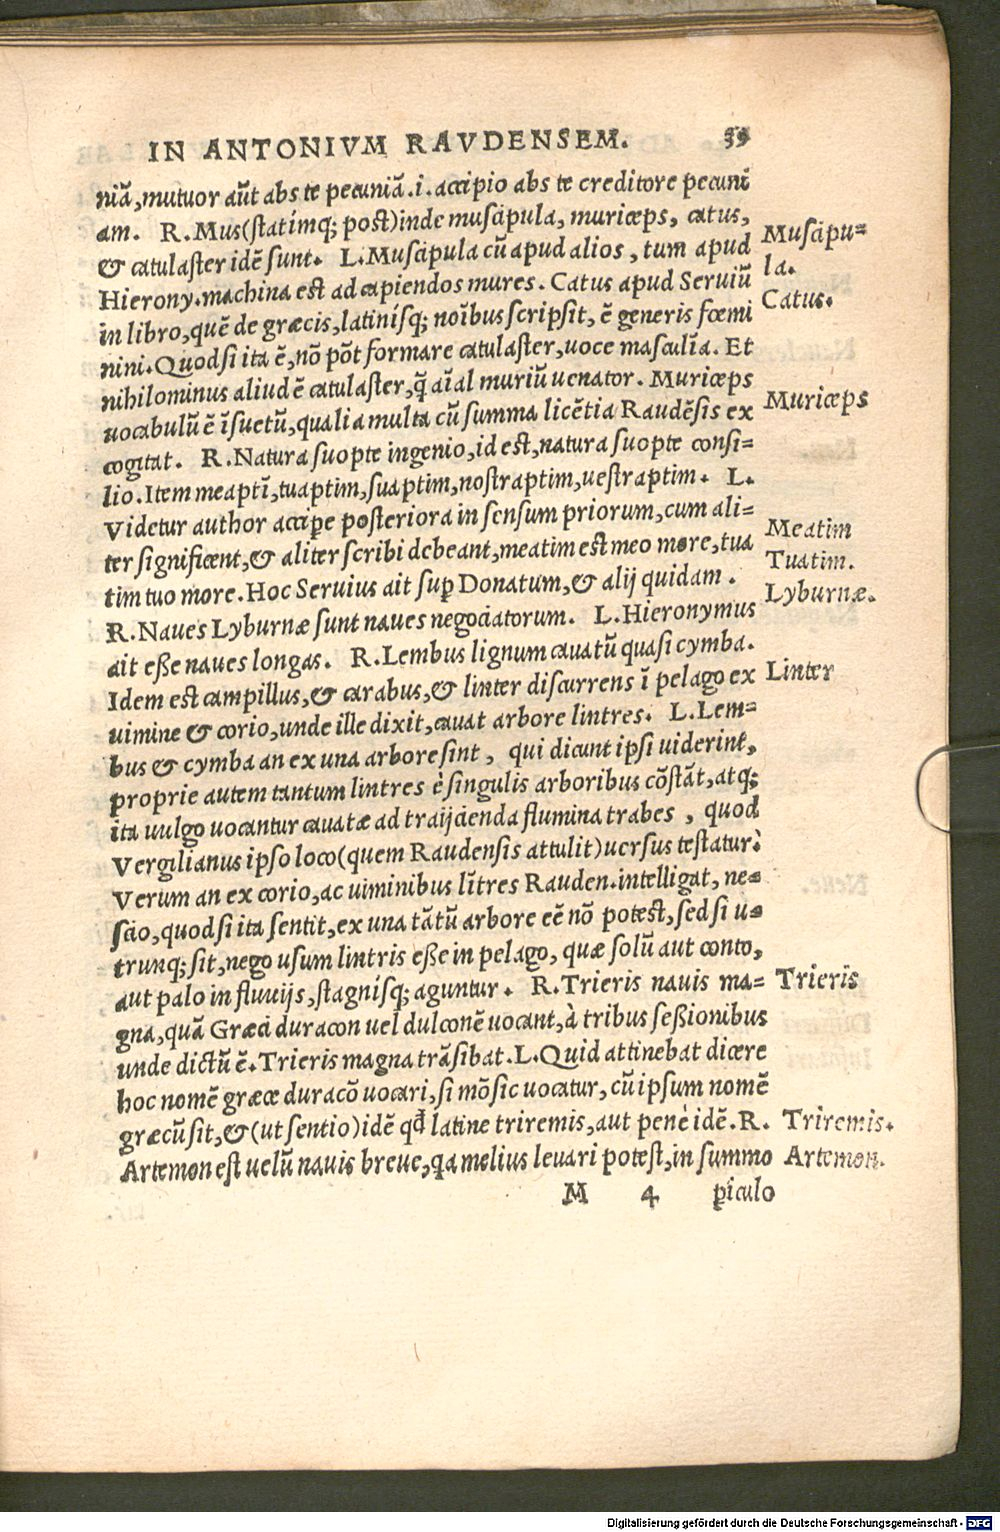 IN ANTONIVM RAVDENSEM. 59
niā, mutuor aūt abs te pecuniā.i. accipio abs te creditore pecuni
am. R. Mus (statimq; post) inde muscipula, muriceps, catus,
& catulaster idē sunt. L. Muscipula cū apud alios, tum apud
Muscipu=
la.
Hierony. machina est ad capiendos mures. Catus apud Seruiū
Catus.
in libro, quē de græcis, latinisq; noībus scripsit, ē generis fœmi
nini. Quod si ita ē, nō pōt formare catulaster, uoce masculīa. Et
nihilominus aliud ē catulaster, q̃ aīal muriū uenator. Muriceps
Muriceps
uocabulū ē īsuetū, qualia multa cū summa licētia Raudēsis ex
cogitat. R. Natura suopte ingenio, id est, natura suopte consi=
lio. Item meaptī, tuaptim, suaptim, nostraptim, uestraptim. L.
Videtur author accipe posteriora in sensum priorum, cum ali=
ter significent, & aliter scribi debeant, meatim est meo more, tua
Meatim
tim tuo more. Hoc Seruius ait sup Donatum, & alij quidam.
Tuatim.
R. Naues Lyburnæ sunt naues negociatorum. L. Hieronymus
Lyburnæ.
ait eße naues longas. R. Lembus lignum cauatū quasi cymba.
Idem est campillus, & carabus, & linter discurrens ī pelago ex
Linter
uimine & corio, unde ille dixit, cauat arbore lintres. L. Lem=
bus & cymba an ex una arbore sint, qui dicunt ipsi uiderint,
proprie autem tantum lintres è singulis arboribus cōstāt, atq;
ita uulgo uocantur cauatæ ad traijcienda flumina trabes, quod
Vergilianus ipso loco (quem Raudensis attulit) uersus testatur.
Verum an ex corio, ac uiminibus lītres Rauden. intelligat, ne=
scio, quod si ita sentit, ex una tātū arbore eē nō potest, sed si u=
trunq; sit, nego usum lintris eße in pelago, quæ solū aut conto,
aut palo in fluuijs, stagnisq; aguntur. R. Trieris nauis ma=
Trieris
gna, quā Græci duracon uel dulconē uocant, à tribus seßionibus
unde dictū ē. Trieris magna trāsibat. L. Quid attinebat dicere
hoc nomē græce duracō uocari, si mō sic uocatur, cū ipsum nomē
græcū sit, & (ut sentio) idē qđ latine triremis, aut penè idē. R.
Triremis.
Artemon est uelū nauis breue, qa melius leuari potest, in summo
Artemon.
M 4 piculo
Digitalisierung gefördert durch die Deutsche Forschungsgemeinschaft - DFG